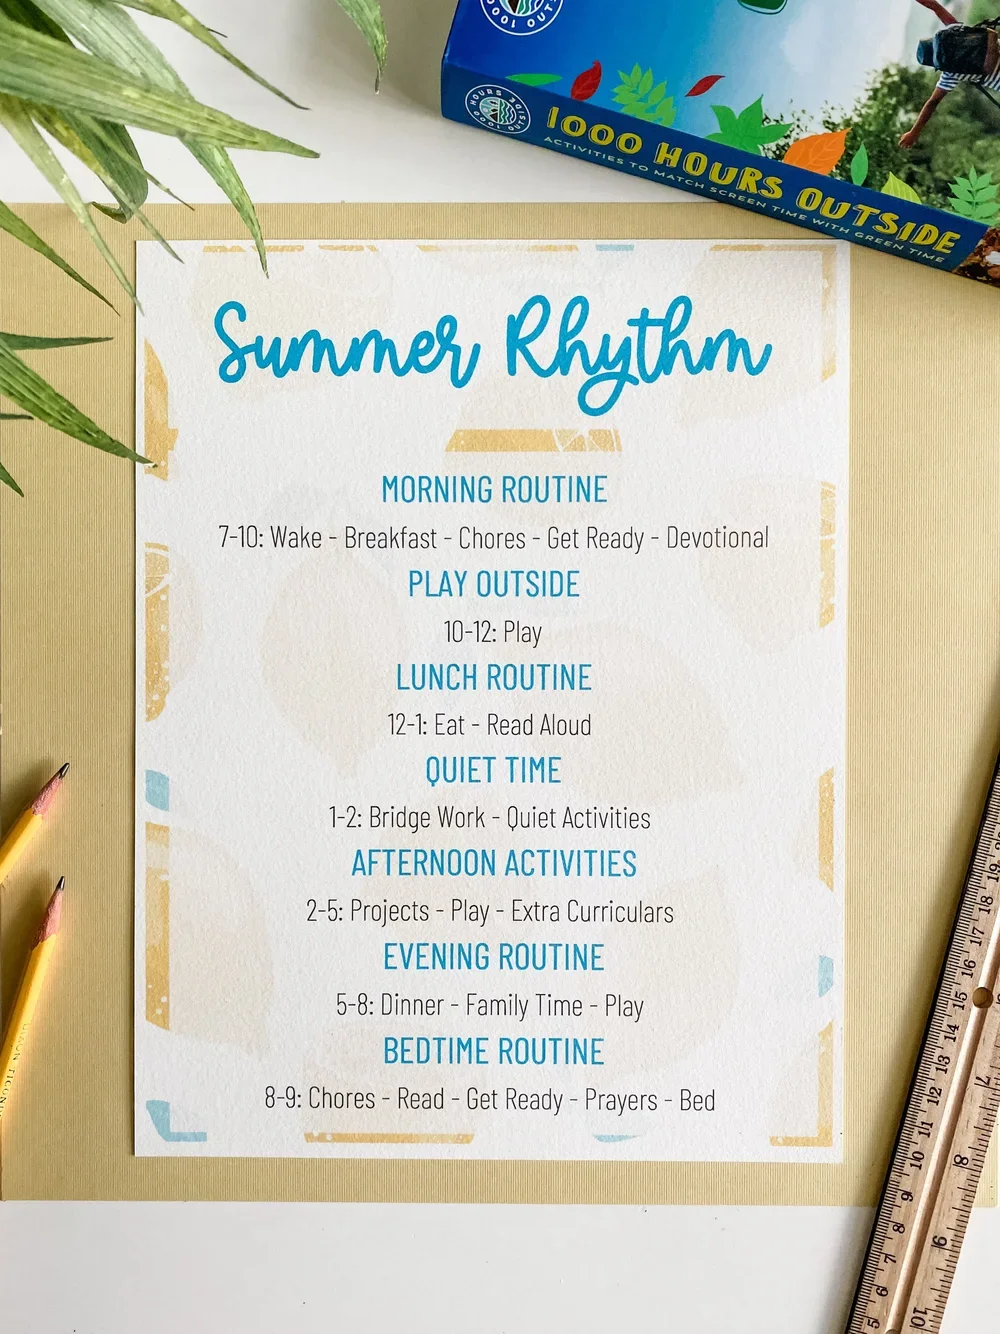 1000 HOURS OUTSIDE
1000 HOURS OUTSIDE
ACTIVITIES TO MATCH SCREEN TIME WITH GREEN TIME
Summer Rhythm
MORNING ROUTINE
7-10: Wake - Breakfast - Chores - Get Ready - Devotional
PLAY OUTSIDE
10-12: Play
LUNCH ROUTINE
12-1: Eat - Read Aloud
QUIET TIME
1-2: Bridge Work - Quiet Activities
AFTERNOON ACTIVITIES
2-5: Projects - Play - Extra Curriculars
EVENING ROUTINE
5-8: Dinner - Family Time - Play
BEDTIME ROUTINE
8-9: Chores - Read - Get Ready - Prayers - Bed
19
18
17
16
15
13
12
11
10
9
8
7
6
5
7
8
9
10